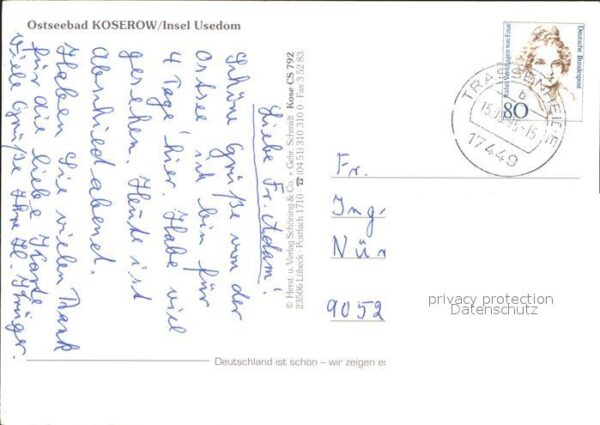 Ostseebad KOSEROW/Insel Usedom
Liebe Fr. Adam!
Schöne Grüße von der
Ostsee ich bin für
4 Tage hier. Habe viel
gesehen. Heute ist
Abschiedabend.
Haben Sie vielen Dank
für die liebe Karte
Viele Grüße Ihre H.
© Herst. u. Verlag Schöning & Co. + Gebr. Schmidt · Kose CS 792
23506 Lübeck · Postfach 1710 · ☎ (04 51) 310 310 0 · Fax 3 52 83
Rahel Varnhagen von Ense
Deutsche Bundespost
80
TRASSENHEIDE
b
17449
Fr.
Ing
Nür
9052
privacy protection
Datenschutz
Deutschland ist schön – wir zeigen es